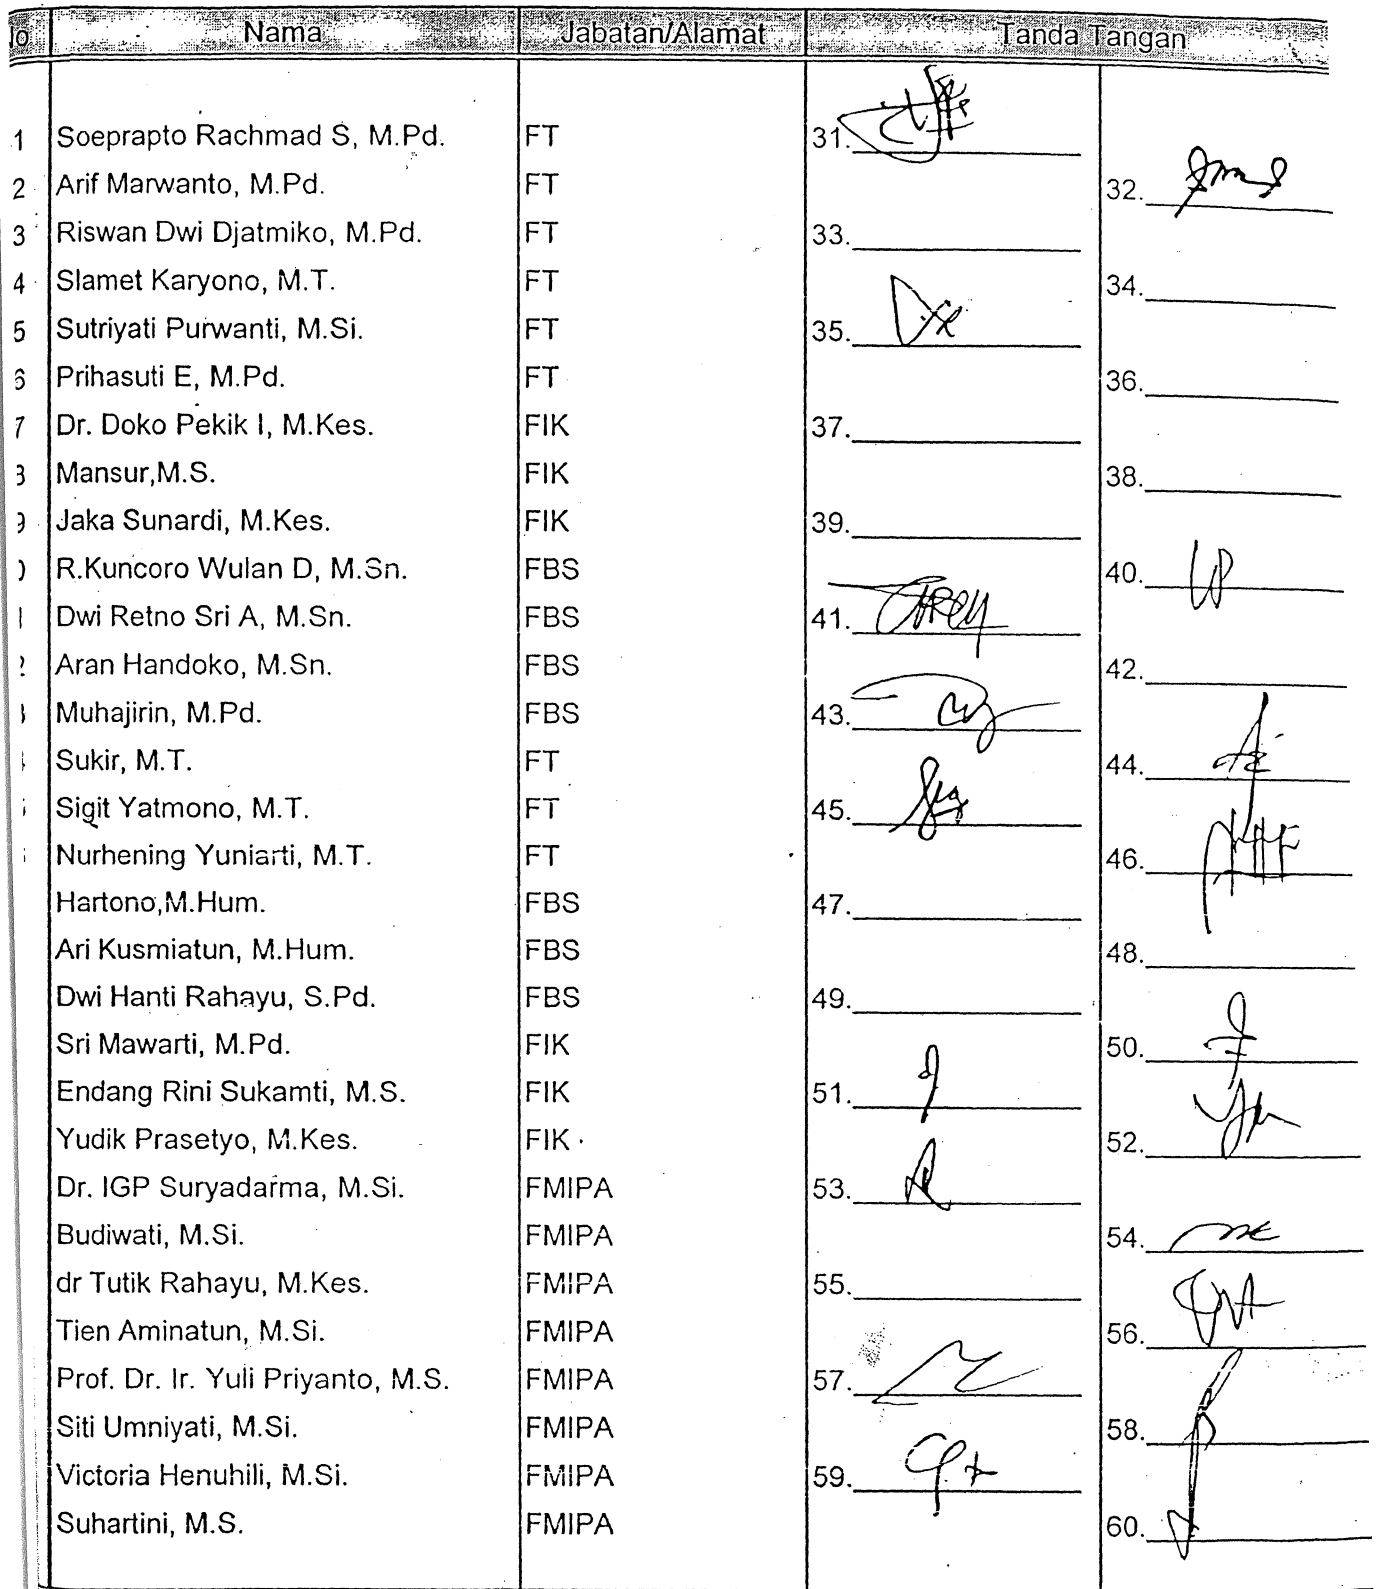 lo Nama Jabatan/Alamat Tanda Tangan
1 Soeprapto Rachmad S, M.Pd. FT 31.
2 Arif Marwanto, M.Pd. FT 32.
3 Riswan Dwi Djatmiko, M.Pd. FT 33.
4 Slamet Karyono, M.T. FT 34.
5 Sutriyati Purwanti, M.Si. FT 35.
6 Prihasuti E, M.Pd. FT 36.
7 Dr. Doko Pekik I, M.Kes. FIK 37.
8 Mansur,M.S. FIK 38.
9 Jaka Sunardi, M.Kes. FIK 39.
R.Kuncoro Wulan D, M.Sn. FBS 40.
Dwi Retno Sri A, M.Sn. FBS 41.
Aran Handoko, M.Sn. FBS 42.
Muhajirin, M.Pd. FBS 43.
Sukir, M.T. FT 44.
Sigit Yatmono, M.T. FT 45.
Nurhening Yuniarti, M.T. FT 46.
Hartono,M.Hum. FBS 47.
Ari Kusmiatun, M.Hum. FBS 48.
Dwi Hanti Rahayu, S.Pd. FBS 49.
Sri Mawarti, M.Pd. FIK 50.
Endang Rini Sukamti, M.S. FIK 51.
Yudik Prasetyo, M.Kes. FIK 52.
Dr. IGP Suryadarma, M.Si. FMIPA 53.
Budiwati, M.Si. FMIPA 54.
dr Tutik Rahayu, M.Kes. FMIPA 55.
Tien Aminatun, M.Si. FMIPA 56.
Prof. Dr. Ir. Yuli Priyanto, M.S. FMIPA 57.
Siti Umniyati, M.Si. FMIPA 58.
Victoria Henuhili, M.Si. FMIPA 59.
Suhartini, M.S. FMIPA 60.